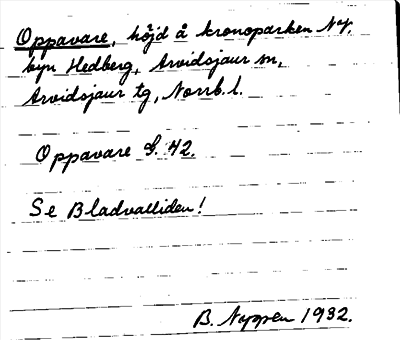 Oppavare, höjd å kronoparken Ny.
byn Hedberg, Arvidsjaur sn,
Arvidsjaur tg, Norrb. l.
Oppavare G. 42.
Se Bladvalliden!
B. Nyppen 1932.